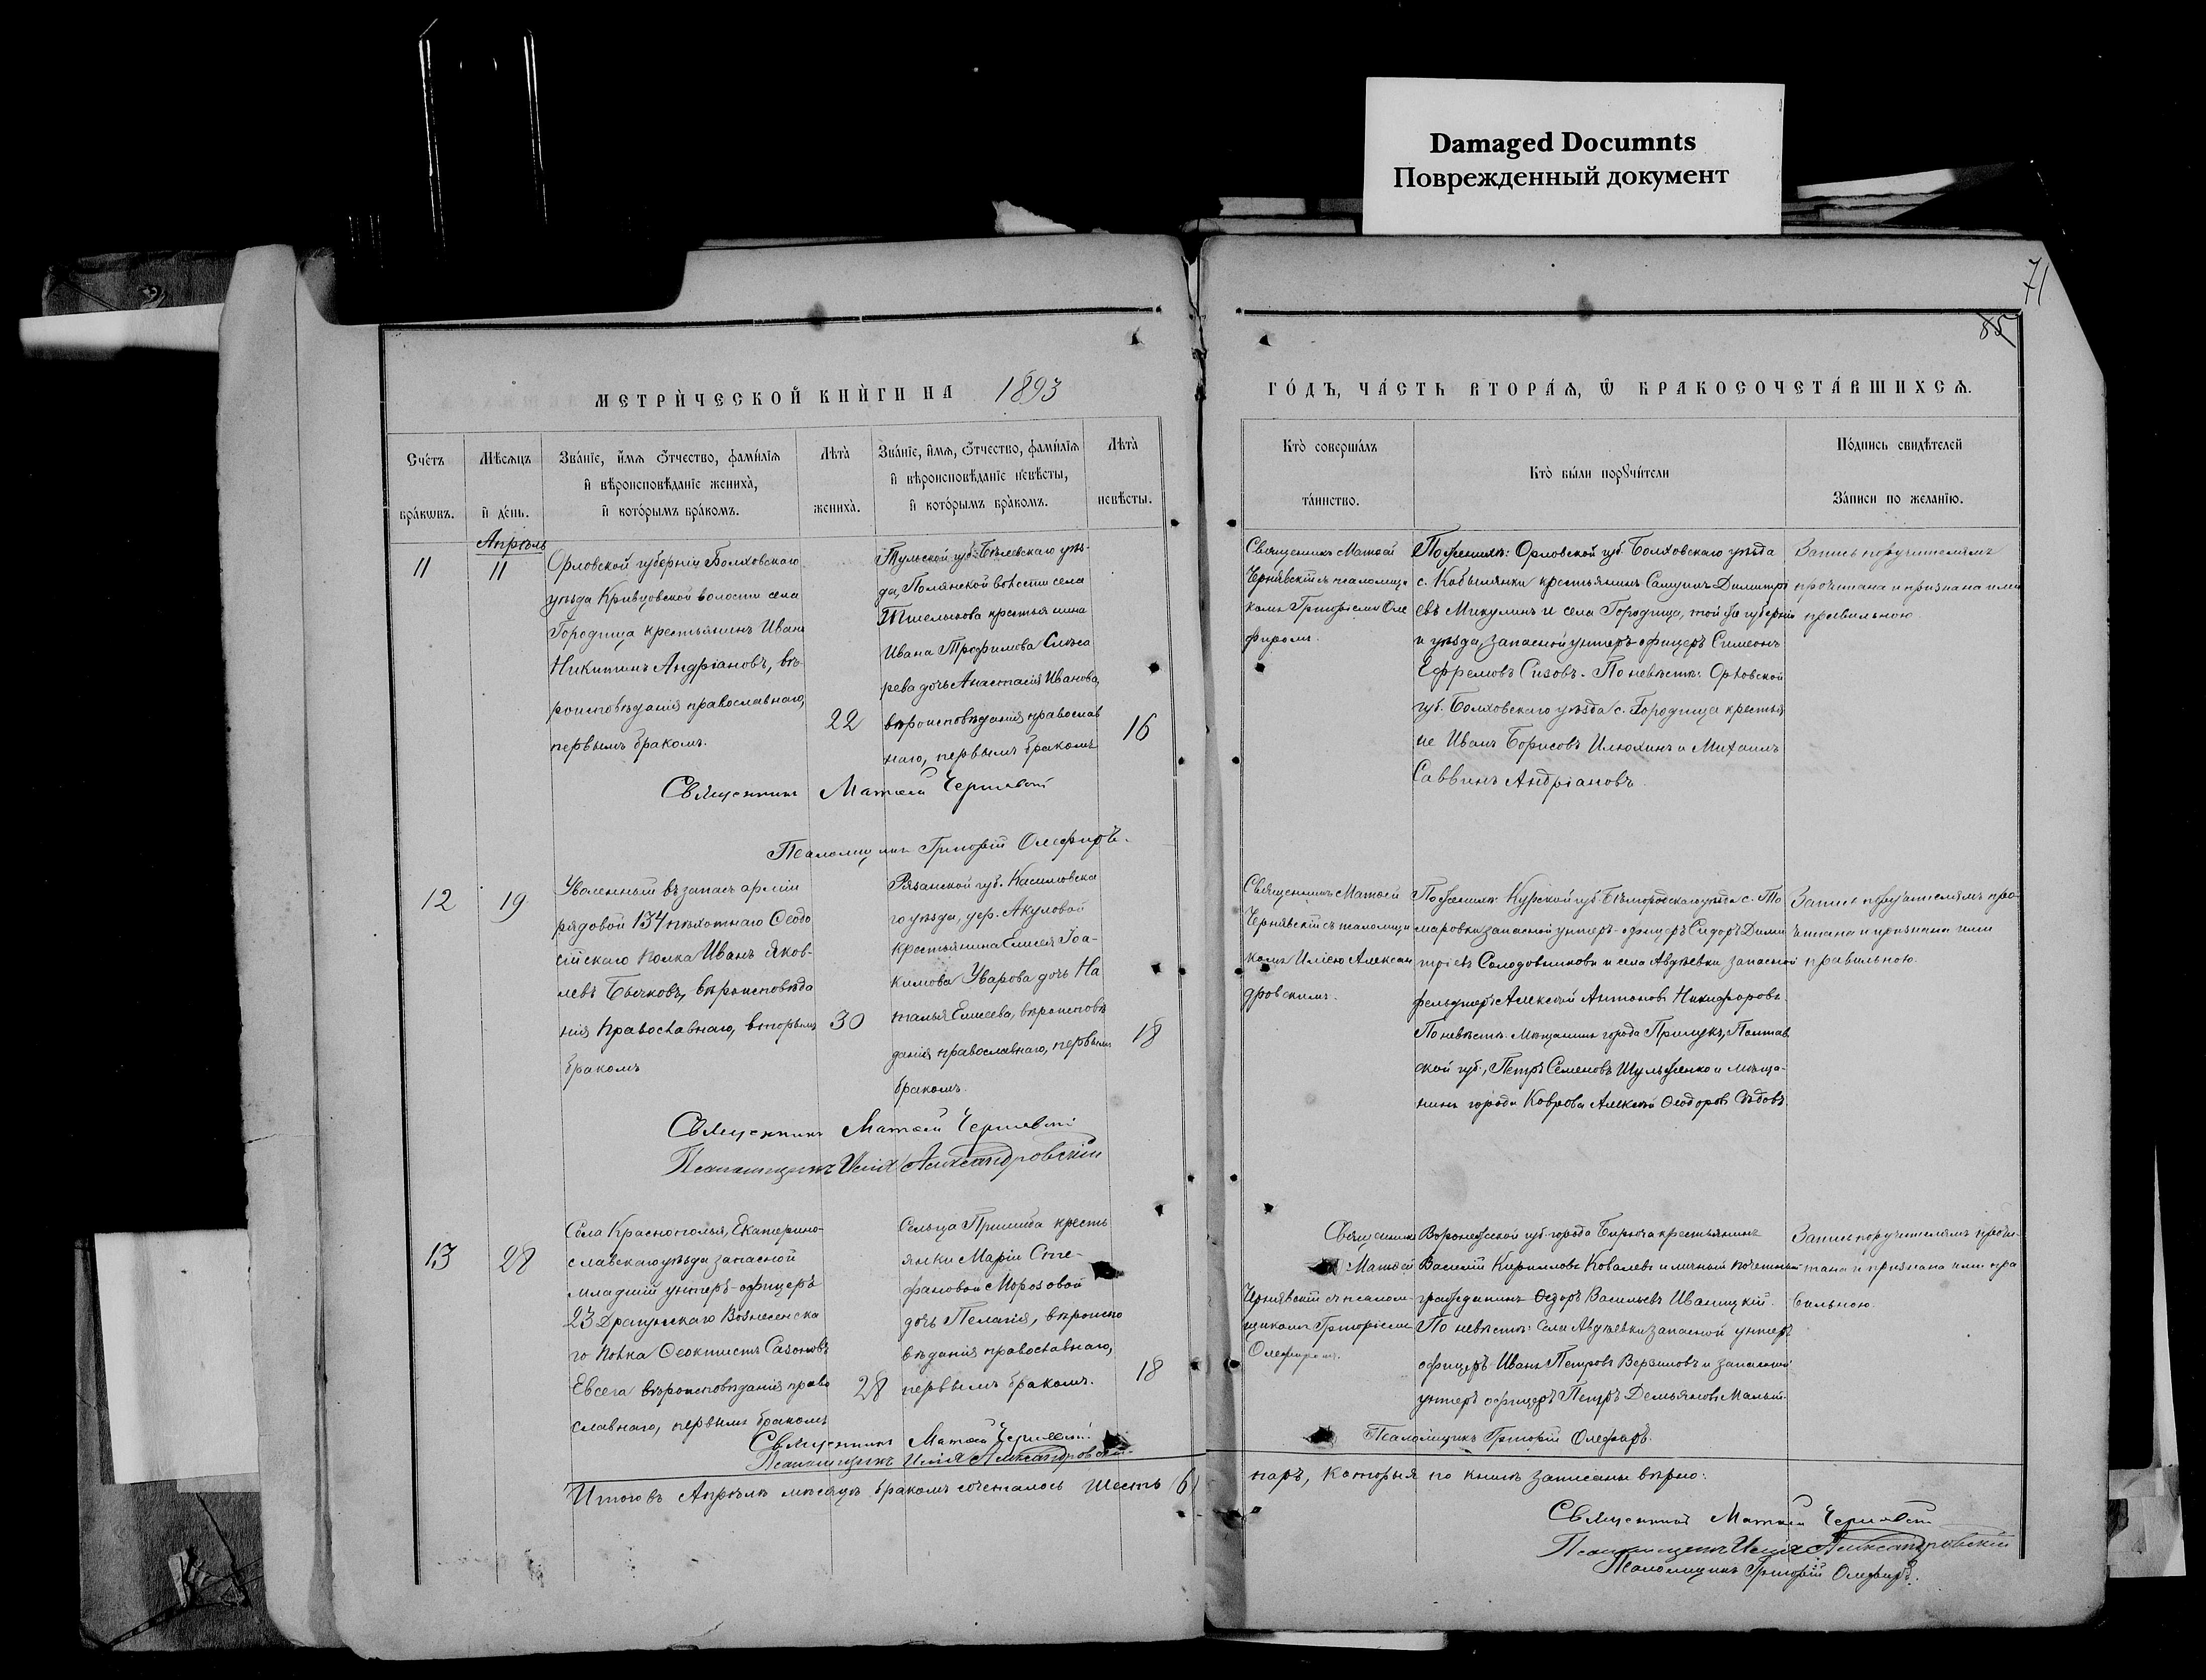 Damaged Documnts
Поврежденный документ
71
85
МЕТРИЧЕСКОЙ КНИГИ НА 1893
ГОДЪ, ЧАСТЬ ВТОРАЯ, Ѿ БРАКОСОЧЕТАВШИХСЯ.
Счетъ
браковъ.
Мѣсяцъ
и день.
Званіе, имя отчество, фамилія
и вѣроисповѣданіе жениха,
и которымъ бракомъ.
Лѣта
жениха.
Званіе, имя, отчество, фамилія
и вѣроисповѣданіе невѣсты,
и которымъ бракомъ.
Лѣта
невѣсты.
Кто совершалъ
таинство.
Кто были поручители
Подпись свидѣтелей
Записи по желанію.
Апрѣль
11
11
Орловской губерніи Болховскаго
уѣзда Кривцовской волости села
Городища крестьянинъ Иванъ
Никитинъ Андріановъ, вѣ-
роисповѣданія православнаго,
первымъ бракомъ.
22
Тульской губ. Бѣлевскаго уѣз-
да, Полянской волости села
крестьянина
Ивана Трофимова
рева дочь Анастасія Иванова,
вѣроисповѣданія православ
наго, первымъ бракомъ
16
Священникъ Матѳей Чернявскій
Псаломщикъ Григорій Олефиръ.
Священникъ Матѳей
Чернявскій съ псаломщи
комъ Григоріемъ Оле
фиромъ.
По женихѣ: Орловской губ. Болховскаго уѣзда
с. Кобылянки крестьянинъ Самуилъ Димитрі
евъ Микулинъ и села Городища, той же губерніи
и уѣзда, запасной унтеръ-офицеръ Симеонъ
Ефремовъ Сизовъ. По невѣстѣ: Орловской
губ. Болховскаго уѣзда с. Городища крестья
не Иванъ Борисовъ Илюхинъ и Михаилъ
Саввинъ Андріановъ.
Запись поручителямъ
прочитана и признана ими
правильною.
12
19
Уволенный въ запасъ арміи
рядовой 134 пѣхотнаго Ѳеодо
сійскаго полка Иванъ Яков-
левъ Бычковъ, вѣроисповѣда
нія православнаго, вторымъ
бракомъ
30
Рязанской губ. Касимовска
го уѣзда, дер. Акуловой
крестьянина Елисея Іоа-
кимова Уварова дочь На
талья Елисеева, вѣроисповѣ
данія православнаго, первымъ
бракомъ.
18
Священникъ Матѳей Чернявскій
Псаломщикъ Илія Александровскій
Священникъ Матѳей
Чернявскій съ псаломщи
комъ Иліею Алексан
дровскимъ.
По женихѣ: Курской губ. Бѣлгородскаго уѣзда с. То
маровки запасной унтеръ-офицеръ Сидоръ Дими
тріевъ Солодовниковъ и села Авдѣевки запасной
фельдшеръ Алексѣй Антоновъ Никифоровъ.
По невѣстѣ: Мѣщанинъ города Прилукъ, Полтав
ской губ., Петръ Семеновъ Шульженко и мѣща-
нинъ города Коврова Алексѣй Ѳеодоровъ Сѣдовъ.
Запись поручителямъ про-
читана и признана ими
правильною.
13
28
Села Краснополья, Екатерино-
славскаго уѣзда запасной
младшій унтеръ-офицеръ
23 Драгунскаго Вознесенска
го полка Ѳеоктистъ Сазоновъ
Евсега вѣроисповѣданія право
славнаго, первымъ бракомъ
28
Сельца Пришиба кресть
янки Маріи Сте-
фановой Морозовой
дочь Пелагія, вѣроиспо
вѣданія православнаго,
первымъ бракомъ.
18
Священникъ Матѳей Чернявскій.
Псаломщикъ Илія Александровскій.
Священникъ
Матѳей
Чернявскій съ псалом-
щикомъ Григоріемъ
Олефиромъ.
Воронежской губ. города Бирюча крестьянинъ
Василій Кирилловъ Ковалевъ и личный почетный
гражданинъ Ѳедоръ Васильевъ Иваницкій.
По невѣстѣ: Села Авдѣевки запасной унтеръ
офицеръ Иванъ Петровъ Вервиловъ и запасной
унтеръ офицеръ Петръ Демьяновъ Малый.
Псаломщикъ Григорій Олефиръ.
Запись поручителямъ прочи-
тана и признана ими пра
вильною.
Итого въ Апрѣлѣ мѣсяцѣ бракомъ сочеталось шесть (6)
паръ, которыя по книгѣ записаны вѣрно:
Священникъ Матѳей Чернявскій
Псаломщикъ Илія Александровскій
Псаломщикъ Григорій Олефиръ.